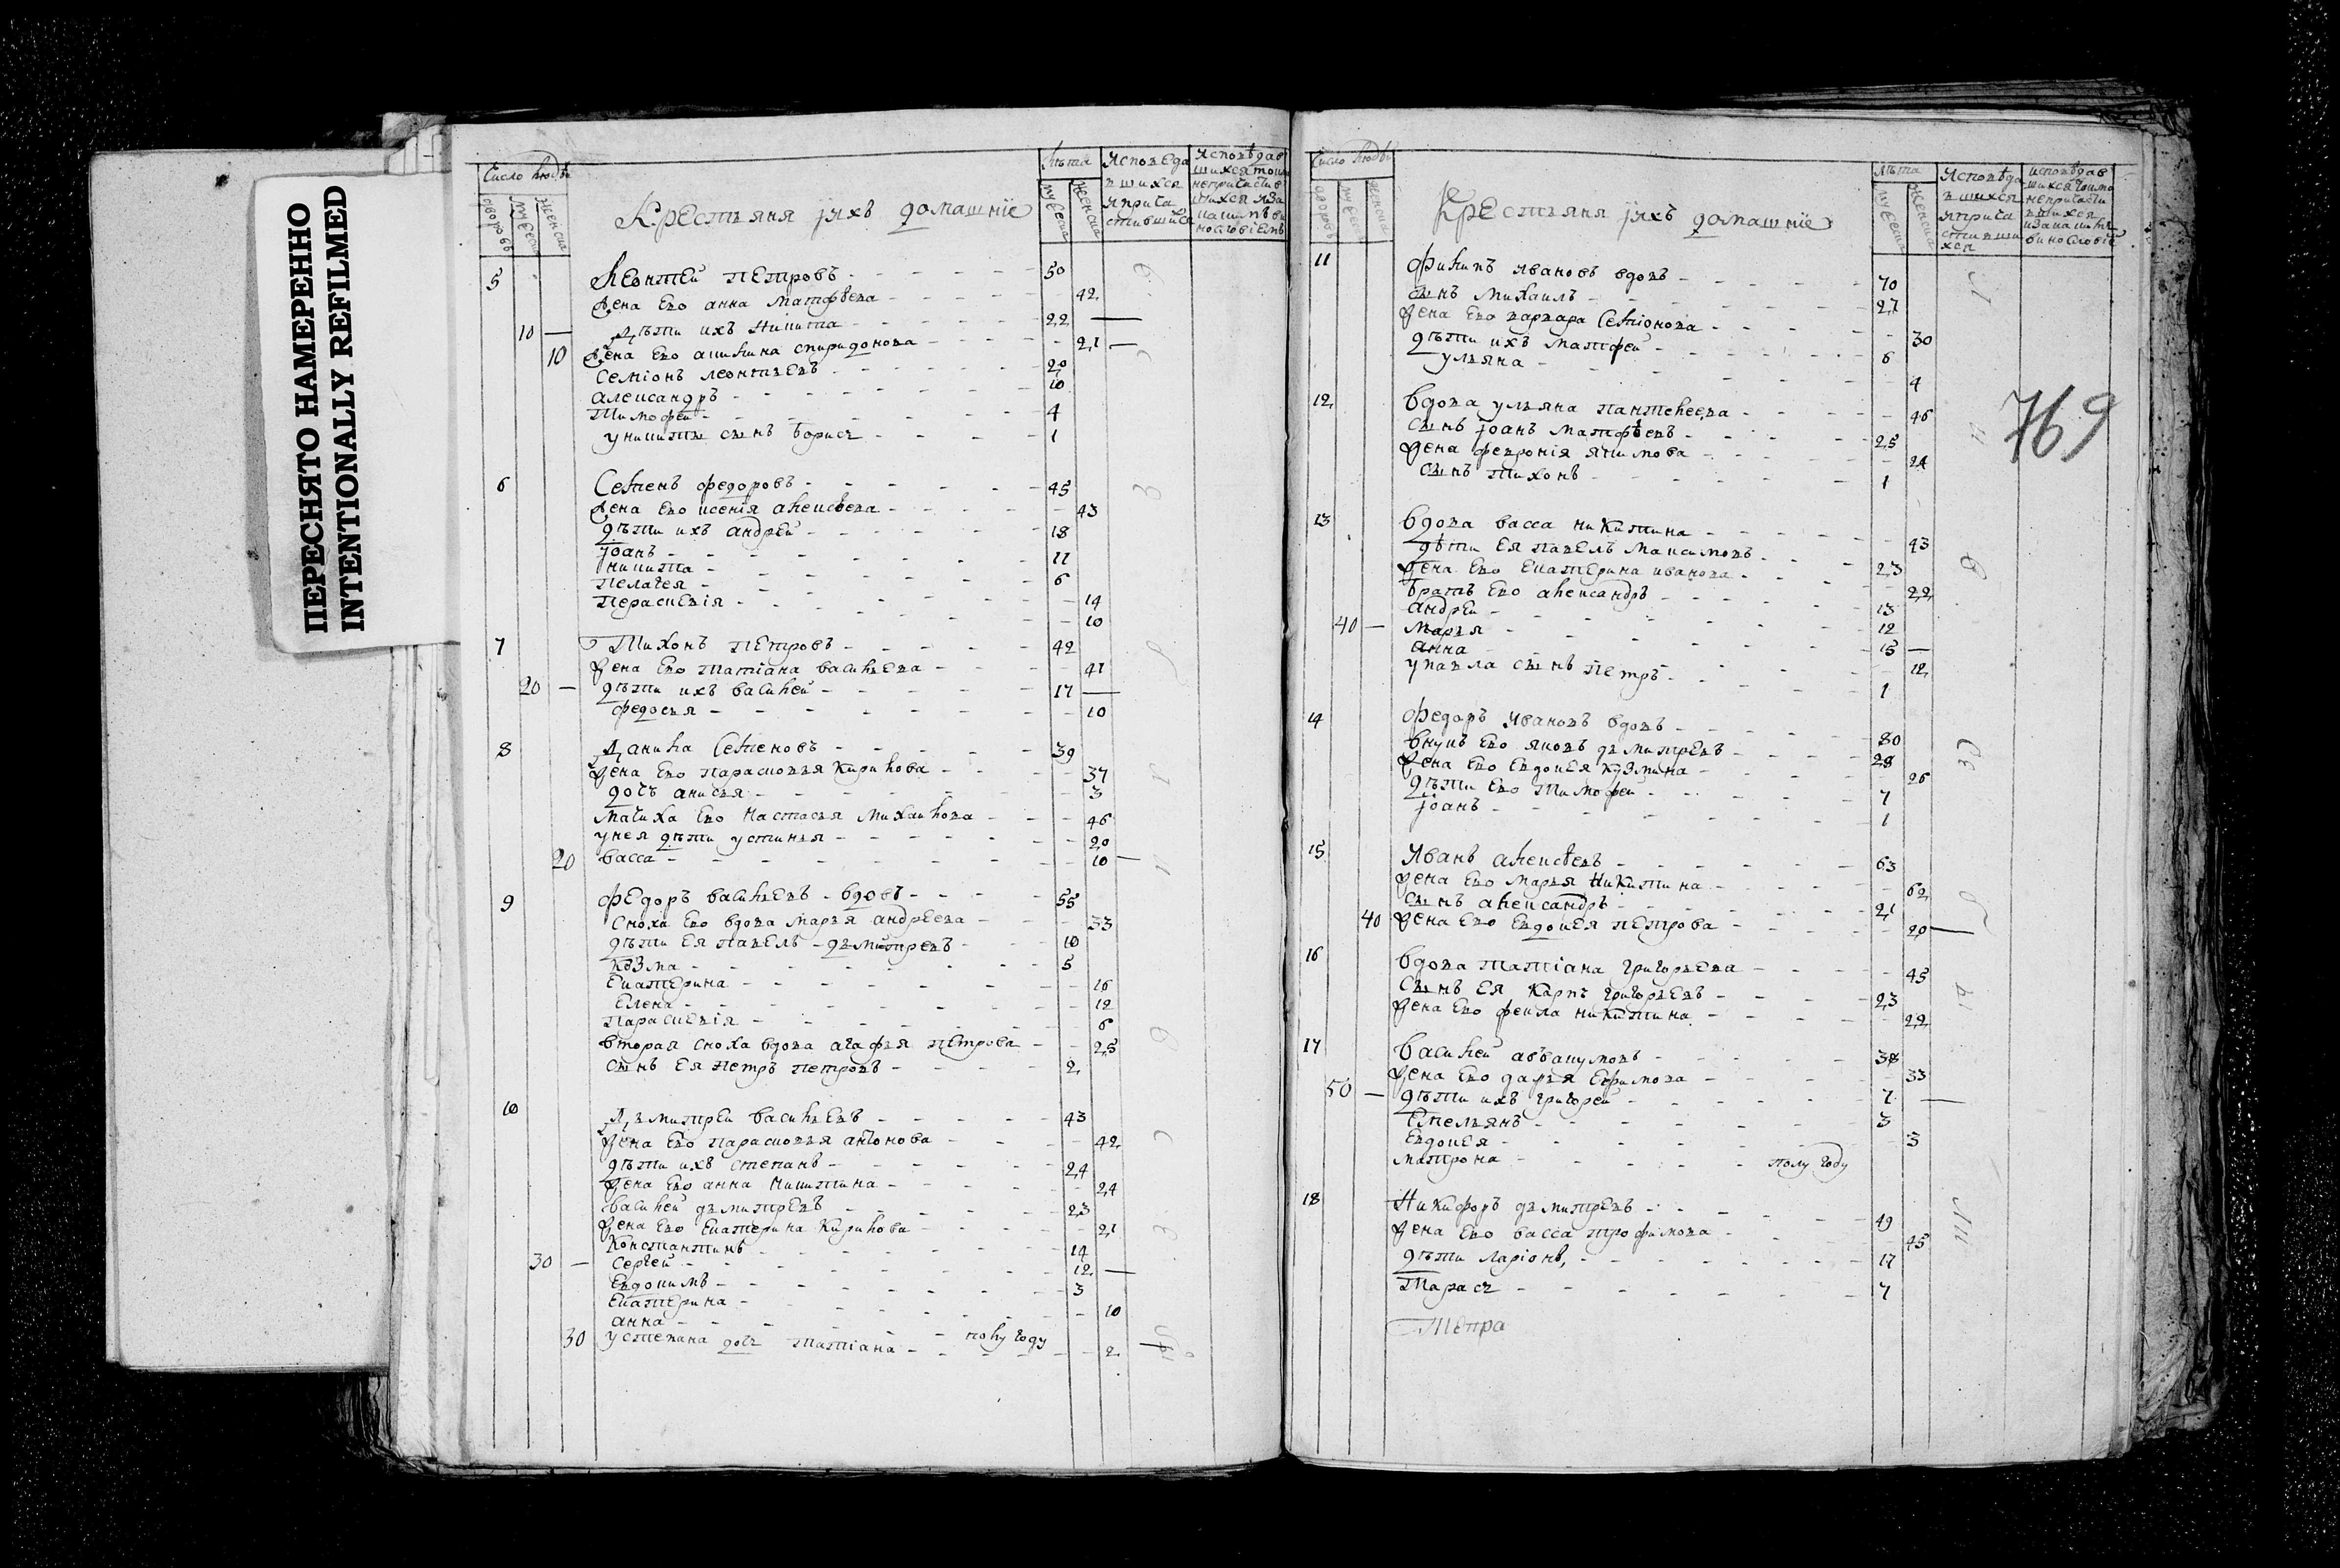 ПЕРЕСНЯТО НАМЕРЕННО
INTENTIONALLY REFILMED
Число людѣ
Крестьяня ихъ домашніе
Лѣта
дворовъ
мужеска
женска
мужеска
женска
5 Леонтей Петровъ 50
Жена Ево Анна Матфѣева 42
10 Дѣти ихъ Никита 22
10 Жена Ево акилина спиридонова 21
Семіонъ леонтьевъ 20
александръ 10
Тимофей 4
у никиты сынъ борисъ 1
6 Семенъ федоровъ 45
Жена Ево ксенія алексѣева 43
дѣти ихъ андрей 18
іоанъ 11
никита 6
пелагея 14
Параскевія 10
7 Тихонъ Петровъ 42
Жена Ево татіана васильева 41
20 дѣти ихъ василей 17
федосья 10
8 Данила Семеновъ 39
Жена Ево парасковья Кирилова 37
дочь анисья 3
Мачиха Ево Настасья Михаилова 46
у нея дѣти устинья 20
20 васса 10
9 Федоръ васильевъ вдовъ 55
Сноха Ево вдова марья андреева 33
дѣти Ея павелъ дьмитревъ 10
козма 5
Екатерина 16
Елена 12
Параскевія 6
вторая сноха вдова агафья петрова 25
сынъ Ея петръ петровъ 2
10 Дьмитрей васильевъ 43
Жена Ево парасковья антонова 42
дѣти ихъ степанъ 24
Жена Ево анна Никитина 24
василей дьмитревъ 23
Жена Ево Екатерина Кирилова 21
Константинъ 14
30 Сергей 12
Евдокимъ 3
Екатерина 10
анна 2
30 у степана дочь татіана полу году
Число людѣ
Крестьяня ихъ домашніе
Лѣта
дворовъ
мужеска
женска
мужеска
женска
769
11 Филипъ Ивановъ вдовъ 70
сынъ Михаилъ 27
Жена Ево варвара Семіонова 30
дѣти ихъ матфей 6
ульяна 4
12 Вдова ульяна пантелеева 46
сынъ іоанъ матфѣевъ 25
Жена феврони́я якимова 24
сынъ тихонъ 1
13 Вдова васса никитина 43
дѣти Ея павелъ максимовъ 23
Жена Ево Екатерина иванова 22
братъ Ево александръ 13
андрей 12
40 Марья 15
анна 12
у павла сынъ Петръ 1
14 Федоръ Ивановъ вдовъ 80
внукъ Ево яковъ дьмитревъ 28
Жена Ево Евдокея кузмина 26
дѣти Ево тимофей 7
іоанъ 1
15 Иванъ алексѣевъ 63
Жена Ево Марья Никитина 62
сынъ александръ 21
40 Жена Ево Евдокея Петрова 20
16 Вдова татіана григорьева 45
сынъ Ея Карпъ григорьевъ 23
Жена Ево фекла никитина 22
17 Василей аввакумовъ 38
Жена Ево дарья Ефимова 33
50 дѣти ихъ григорей 7
Емельянъ 3
Евдокея 3
матрона полу году
18 Никифоръ дьмитревъ 49
Жена Ево васса трофимова 45
дѣти Ларіонъ 17
Тарасъ 7